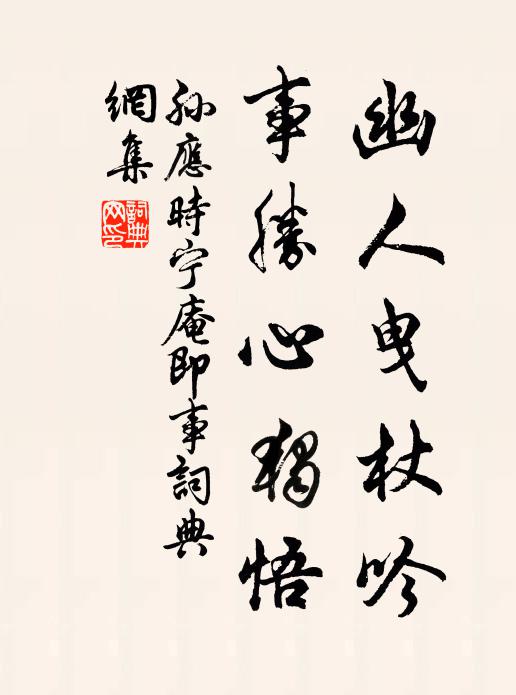 幽人曳杖吟
事勝心獨悟
孫應時宁庵即事詞典
網集
詞典
网印